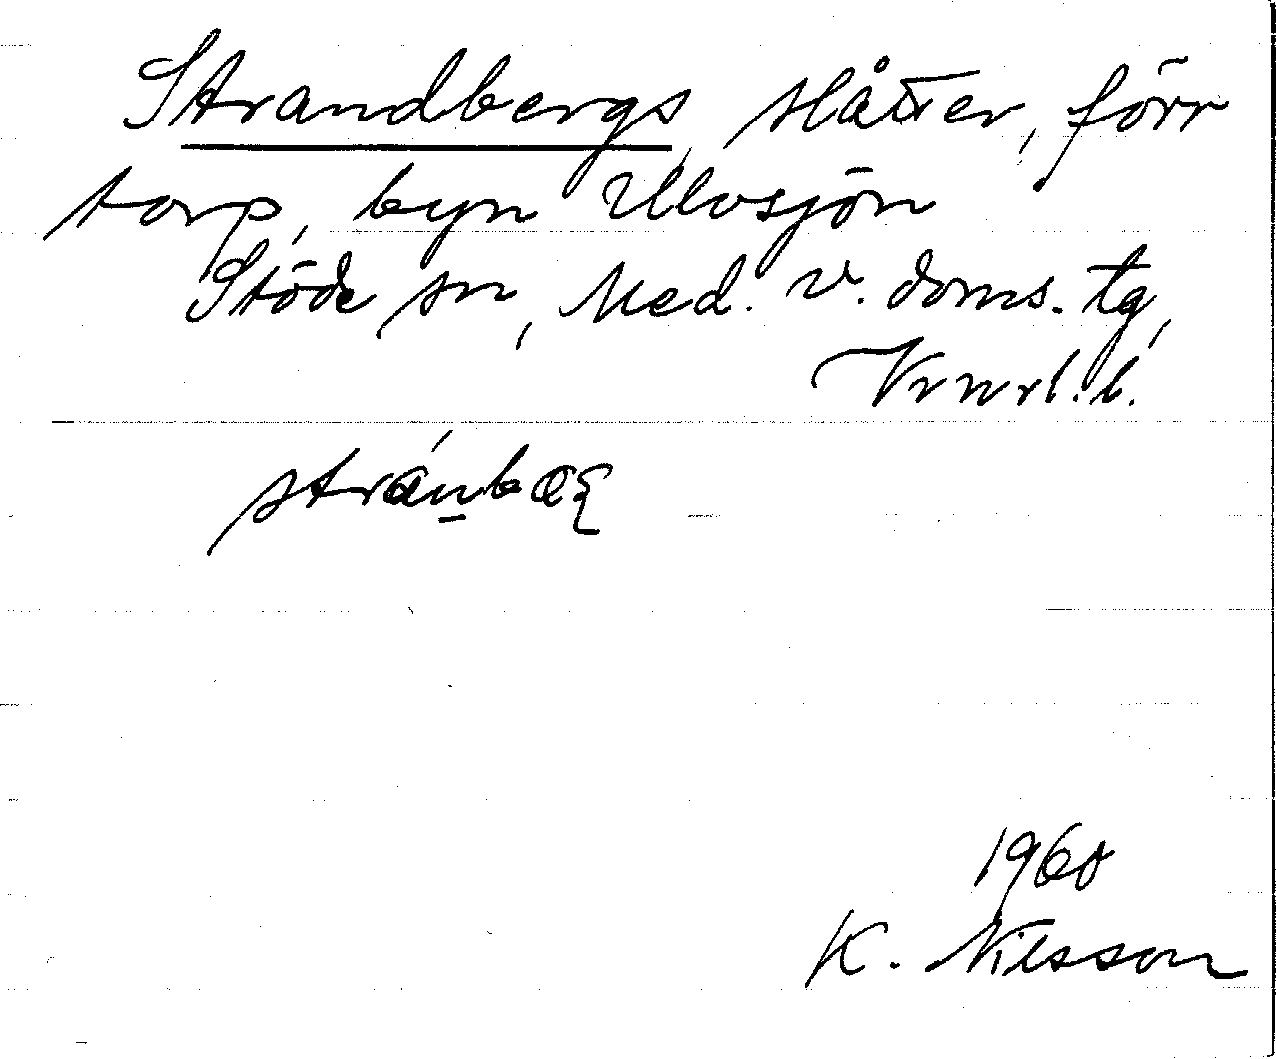 Strandbergs slåtter, förr
torp, byn Ulvsjön
Stöde sn, Med. v. doms. tg,
Vrnrl. b.
1960
K. Nilsson